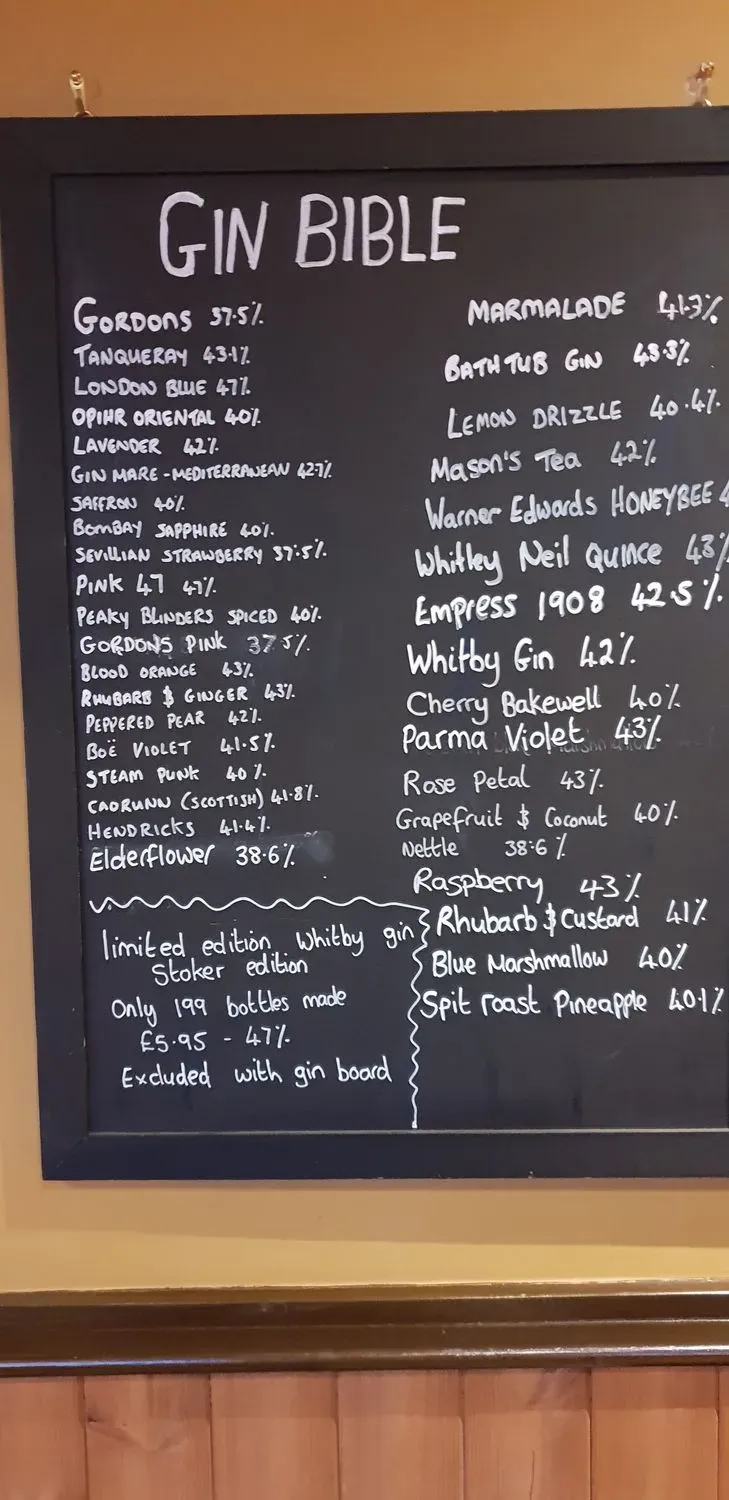 GIN BIBLE
GORDONS 37.5%
TANQUERAY 43.1%
LONDON BLUE 47%
OPIHR ORIENTAL 40%
LAVENDER 42%
GIN MARE - MEDITERRANEAN 42.7%
SAFFRON 40%
BOMBAY SAPPHIRE 40%
SEVILLIAN STRAWBERRY 37.5%
PINK 47 47%
PEAKY BLINDERS SPICED 40%
GORDONS PINK 37.5%
BLOOD ORANGE 43%
RHUBARB & GINGER 43%
PEPPERED PEAR 42%
BOË VIOLET 41.5%
STEAM PUNK 40%
CAORUNN (SCOTTISH) 41.8%
HENDRICKS 41.4%
Elderflower 38.6%
limited edition Whitby gin
Stoker edition
Only 199 bottles made
£5.95 - 47%
Excluded with gin board
MARMALADE 41.3%
BATH TUB GIN 43.3%
LEMON DRIZZLE 40.4%
Mason's Tea 42%
Warner Edwards HONEYBEE
Whitley Neil Quince 43%
Empress 1908 42.5%
Whitby Gin 42%
Cherry Bakewell 40%
Parma Violet 43%
Rose Petal 43%
Grapefruit & Coconut 40%
Nettle 38.6%
Raspberry 43%
Rhubarb & Custard 41%
Blue Marshmallow 40%
Spit roast Pineapple 40.1%